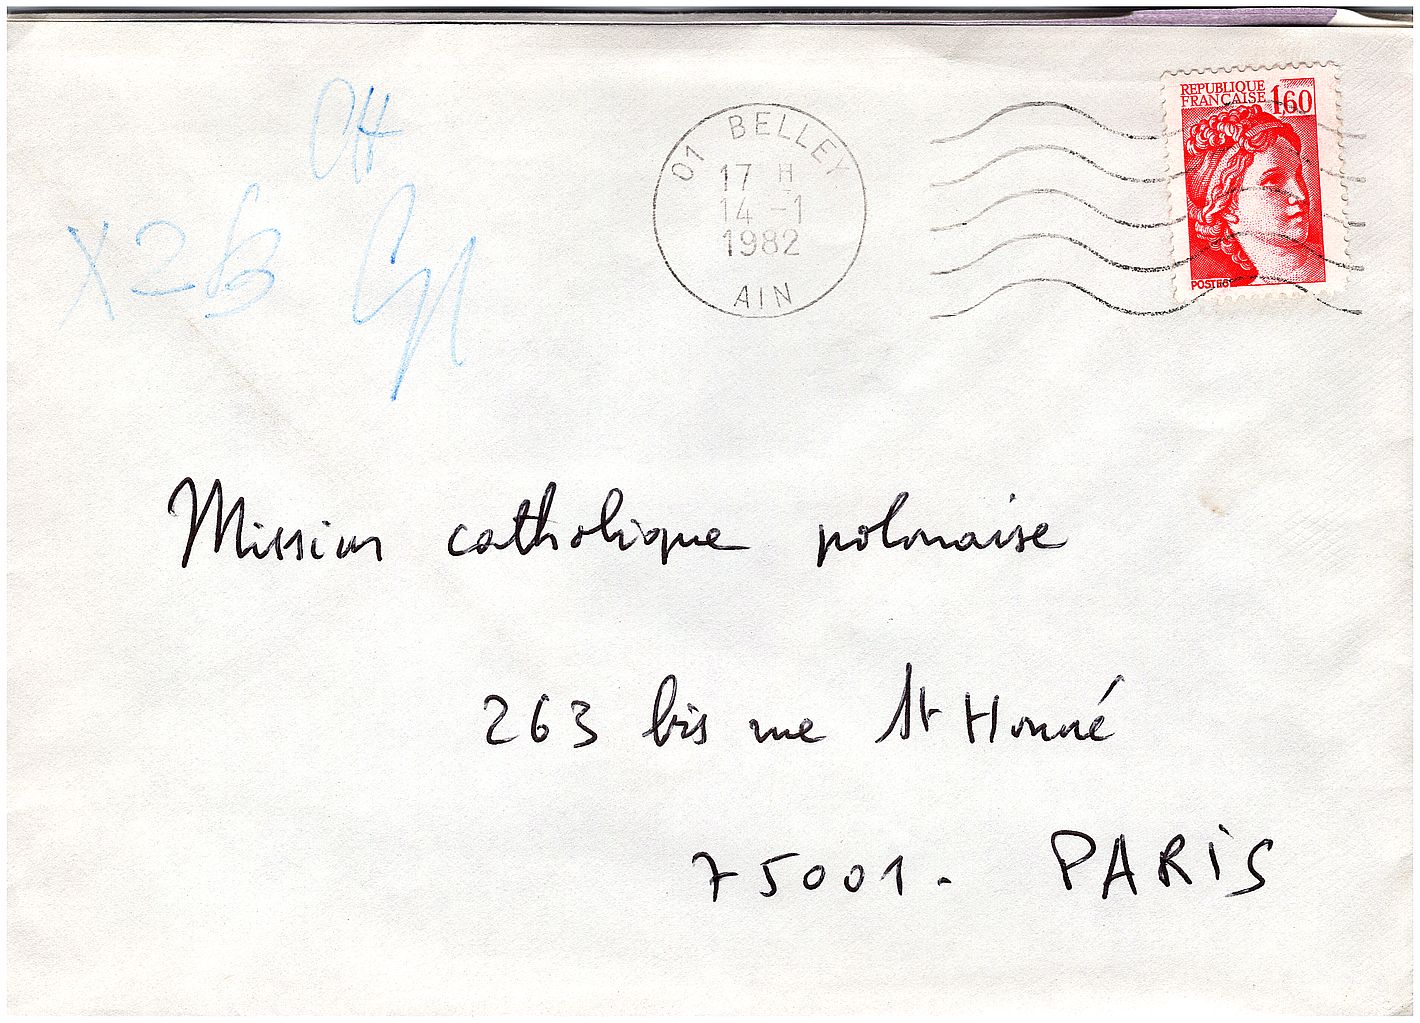 REPUBLIQUE
FRANÇAISE 1,60
POSTES
01 BELLEY
17 H
14 -1
1982
AIN
Mission catholique polonaise
263 bis rue St Honoré
75001. PARIS